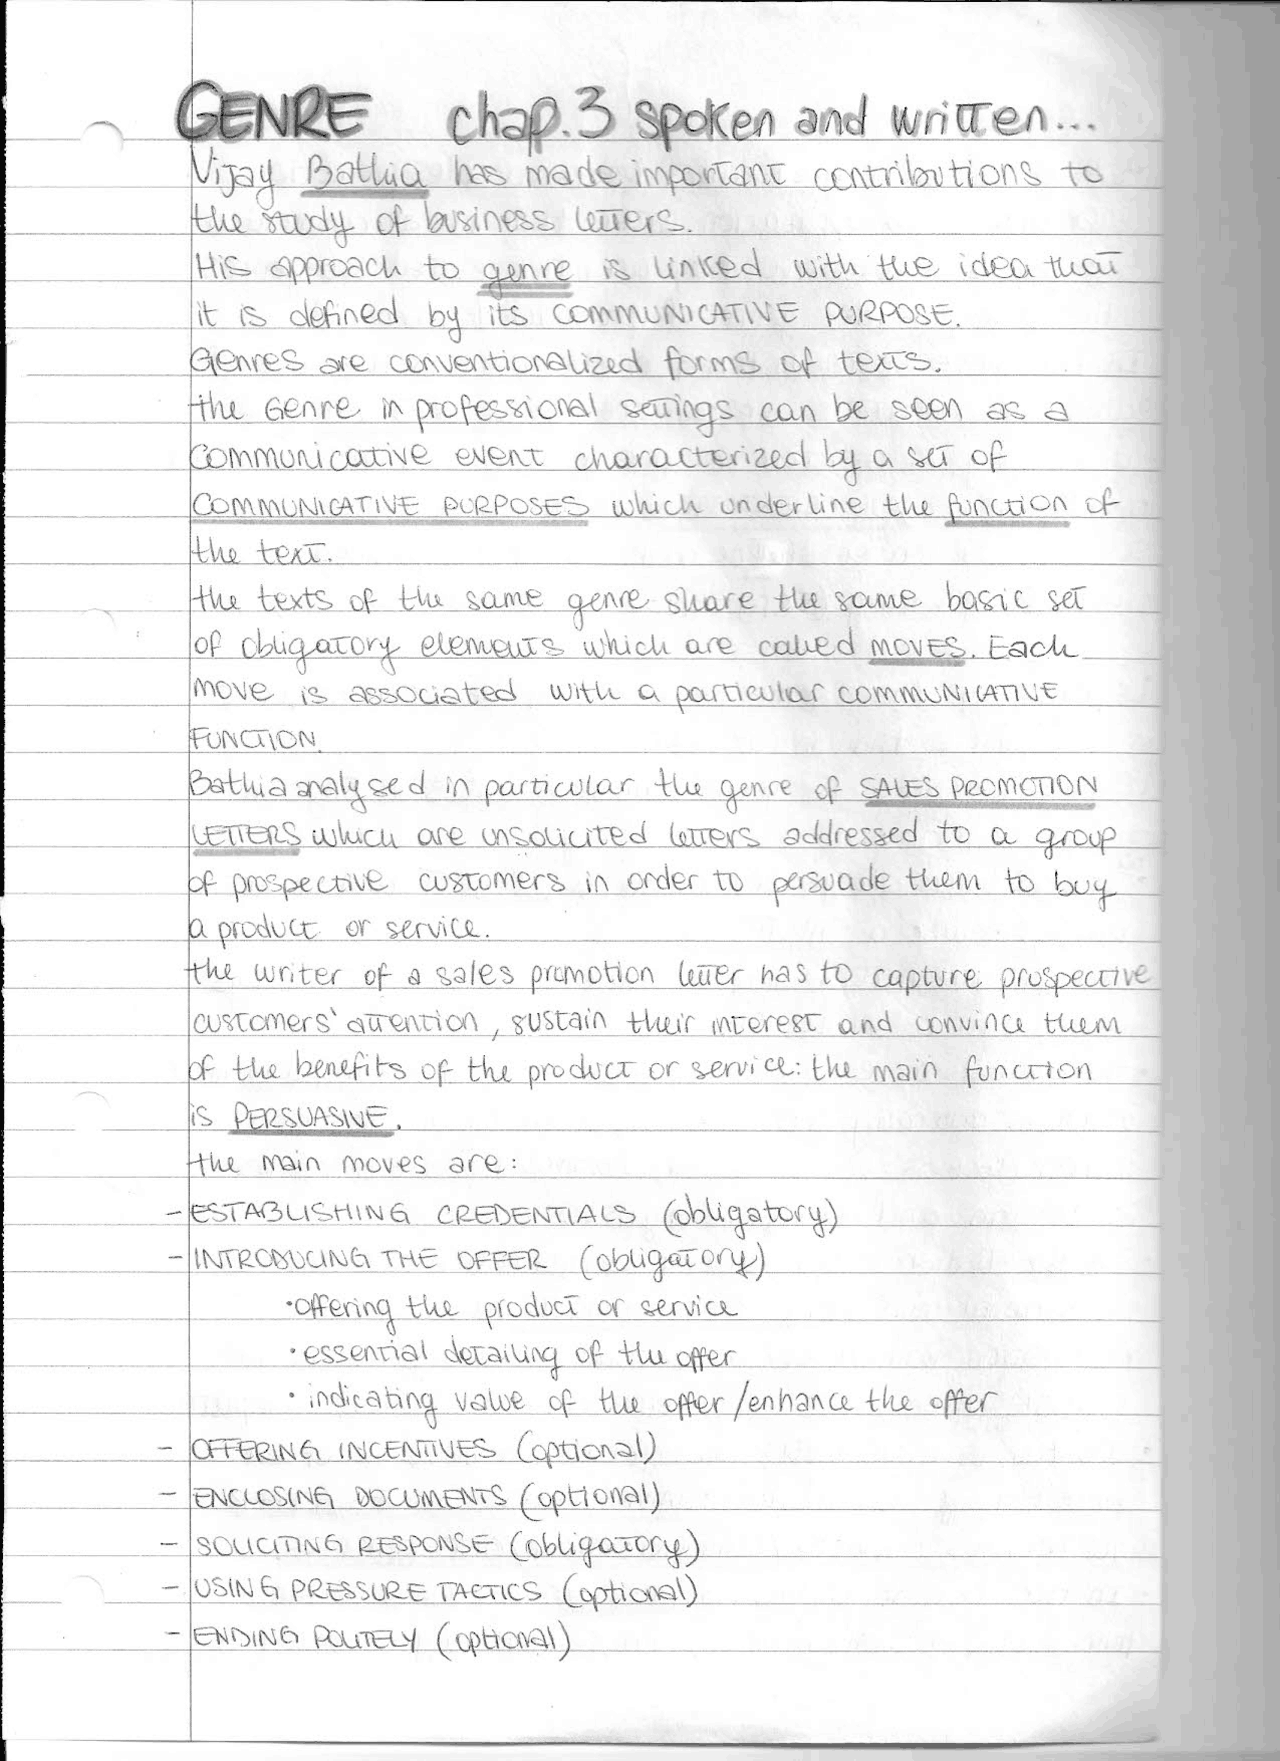 GENRE chap.3 spoken and written...
Vijay Bathia has made important contributions to
the study of business letters.
His approach to genre is linked with the idea that
it is defined by its COMMUNICATIVE PURPOSE.
Genres are conventionalized forms of texts.
the Genre in professional settings can be seen as a
communicative event characterized by a set of
COMMUNICATIVE PURPOSES which underline the function of
the text.
the texts of the same genre share the same basic set
of obligatory elements which are called MOVES. Each
move is associated with a particular COMMUNICATIVE
FUNCTION.
Bathia analysed in particular the genre of SALES PROMOTION
LETTERS which are unsolicited letters addressed to a group
of prospective customers in order to persuade them to buy
a product or service.
the writer of a sales promotion letter has to capture prospective
customers' attention, sustain their interest and convince them
of the benefits of the product or service: the main function
is PERSUASIVE.
the main moves are:
- ESTABLISHING CREDENTIALS (obligatory)
- INTRODUCING THE OFFER (obligatory)
• offering the product or service
• essential detailing of the offer
• indicating value of the offer/enhance the offer
- OFFERING INCENTIVES (optional)
- ENCLOSING DOCUMENTS (optional)
- SOLICITING RESPONSE (obligatory)
- USING PRESSURE TACTICS (optional)
- ENDING POLITELY (optional)